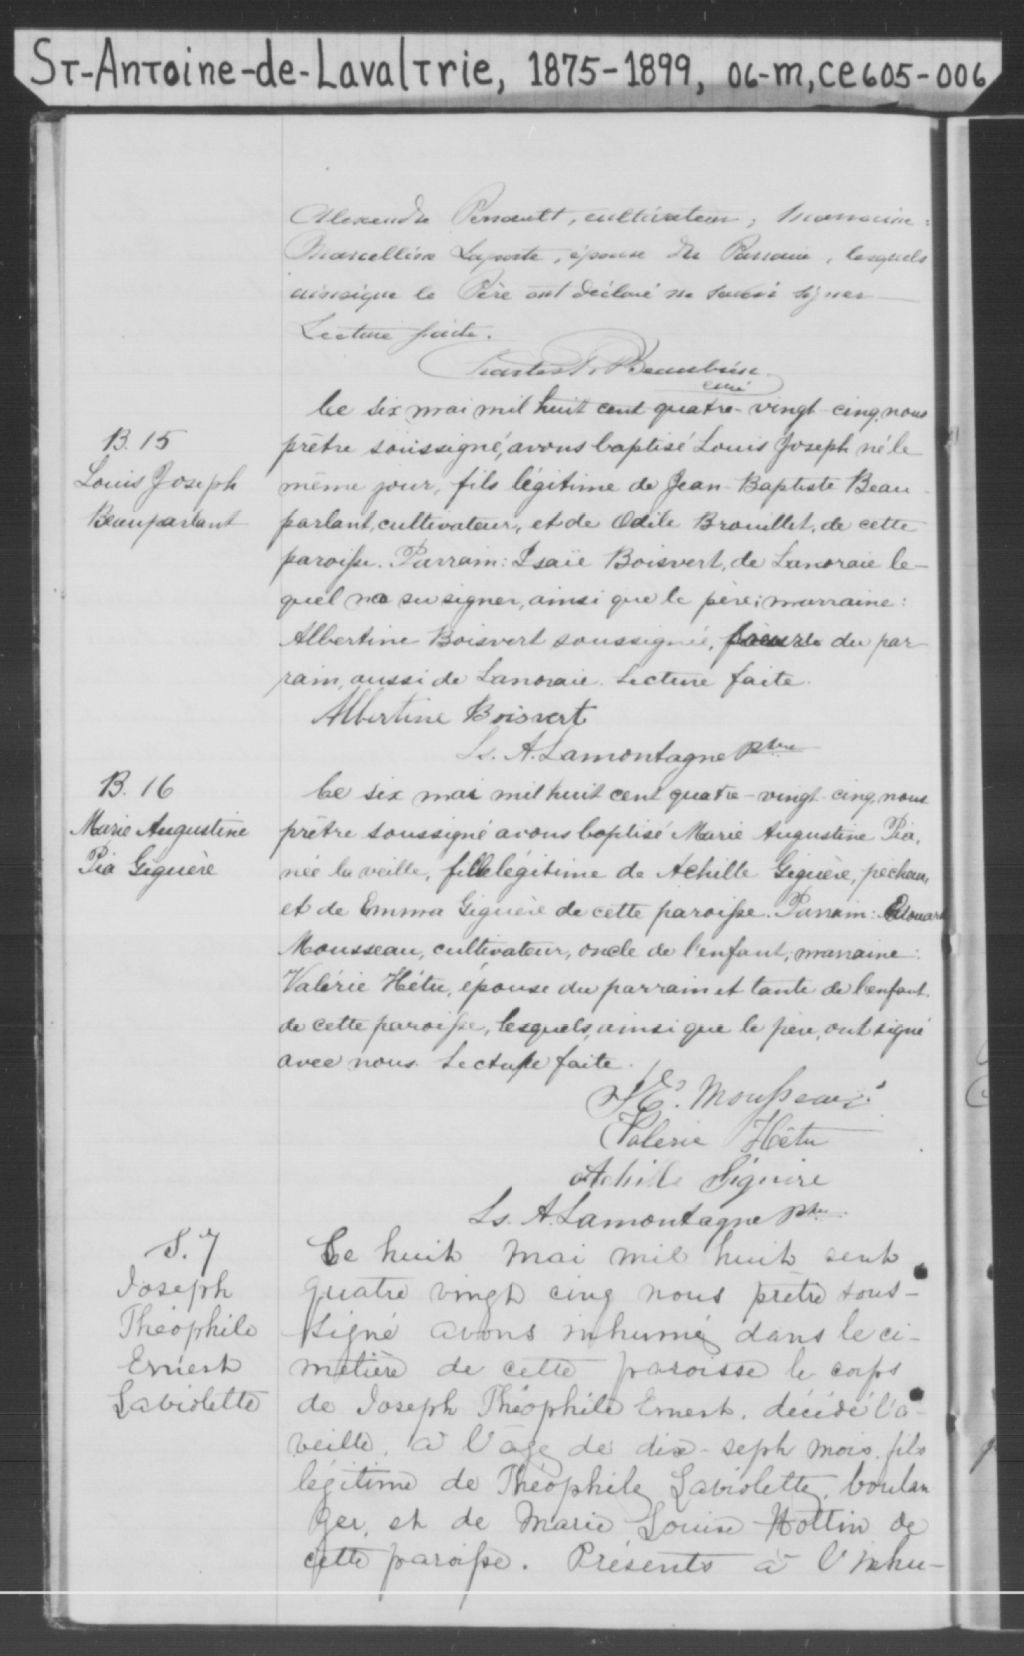 ST-Antoine-de-Lavaltrie, 1875-1899, 06-M, CE605-006
Alexandre Perrault, cultivateur, Marraine:
Marcelline Laporte, épouse du Parrain, lesquels
ainsique le Père ont déclaré ne savoir signer
Lecture faite.
Beaubien
curé
B. 15
Louis Joseph
Beauparlant
Ce six mai mil huit cent quatre-vingt-cinq, nous
prêtre soussigné, avons baptisé Louis Joseph né le
même jour, fils légitime de Jean-Baptiste Beau-
parlant, cultivateur, et de Odile Brouillet, de cette
paroisse. Parrain: Isaïe Boisvert, de Lanoraie le-
quel n'a su signer, ainsi que le père; marraine:
Albertine Boisvert soussignée, du par-
rain, aussi de Lanoraie. Lecture faite.
Albertine Boisvert
Ls. A. Lamontagne Ptre
B. 16
Marie Augustine
Pia Giguère
Ce six mai mil huit cent quatre-vingt-cinq, nous
prêtre soussigné avons baptisé Marie Augustine Pia,
née la veille, fille légitime de Achille Giguère, pêcheur,
et de Emma Giguère de cette paroisse. Parrain: Edouard
Mousseau, cultivateur, oncle de l'enfant, marraine:
Valérie Hétu, épouse du parrain et tante de l'enfant,
de cette paroisse, lesquels, ainsi que le père, ont signé
avec nous. Lecture faite.
E. Mousseau
Valerie Hétu
Achille Giguère
Ls. A. Lamontagne Ptre
S. 7
Joseph
Théophile
Ernest
Laviolette
Ce huit mai mil huit cent
quatre vingt cinq nous prêtre sous-
signé avons inhumé dans le ci-
metière de cette paroisse le corps
de Joseph Théophile Ernest, décédé la
veille, à l'âge de dix-sept mois, fils
légitime de Théophile Laviolette, boulan
ger, et de Marie Louise Hottin de
cette paroisse. Présents à l'inhu-